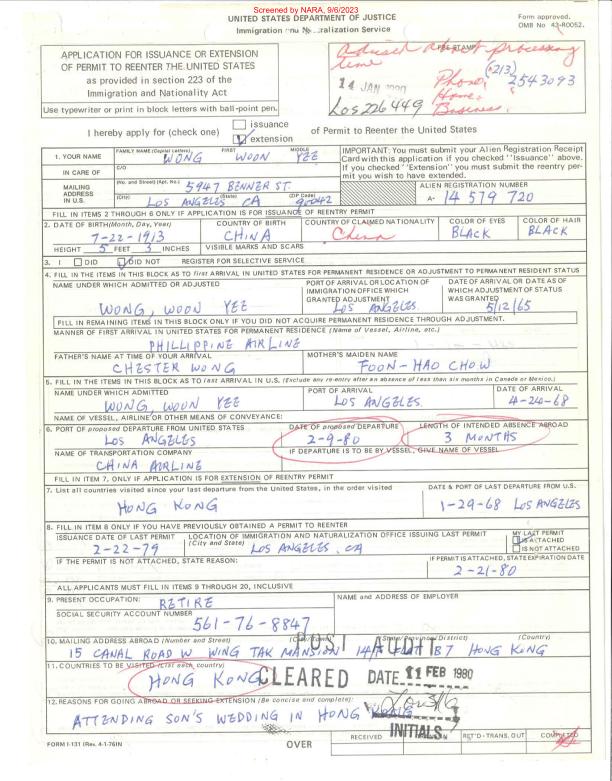 Screened by NARA, 9/6/2023
UNITED STATES DEPARTMENT OF JUSTICE
Immigration and Naturalization Service
Form approved.
OMB No 43-R0052.
APPLICATION FOR ISSUANCE OR EXTENSION
OF PERMIT TO REENTER THE UNITED STATES
as provided in section 223 of the
Immigration and Nationality Act
Use typewriter or print in block letters with ball-point pen.
FEE STAMP
Advised about processing
time
14 JAN 1980
Los 226 449
Phone, (213)
Home. 2543093
Business.
I hereby apply for (check one)
issuance
extension
of Permit to Reenter the United States
1. YOUR NAME
FAMILY NAME (Capital Letters) FIRST MIDDLE
WONG WOON YEE
IMPORTANT: You must submit your Alien Registration Receipt
Card with this application if you checked "Issuance" above.
If you checked "Extension" you must submit the reentry per-
mit you wish to have extended.
IN CARE OF
C/O
MAILING
ADDRESS
IN U.S.
(No. and Street) (Apt. No.)
5947 BENNER ST.
(City) (State) (ZIP Code)
LOS ANGELES CA 90042
ALIEN REGISTRATION NUMBER
A- 14 579 720
FILL IN ITEMS 2 THROUGH 6 ONLY IF APPLICATION IS FOR ISSUANCE OF REENTRY PERMIT
2. DATE OF BIRTH (Month, Day, Year) COUNTRY OF BIRTH COUNTRY OF CLAIMED NATIONALITY COLOR OF EYES COLOR OF HAIR
7-22-1913 CHINA China BLACK BLACK
HEIGHT 5 FEET 3 INCHES VISIBLE MARKS AND SCARS
3. I DID DID NOT REGISTER FOR SELECTIVE SERVICE
4. FILL IN THE ITEMS IN THIS BLOCK AS TO first ARRIVAL IN UNITED STATES FOR PERMANENT RESIDENCE OR ADJUSTMENT TO PERMANENT RESIDENT STATUS
NAME UNDER WHICH ADMITTED OR ADJUSTED
WONG, WOON YEE
PORT OF ARRIVAL OR LOCATION OF
IMMIGRATION OFFICE WHICH
GRANTED ADJUSTMENT
LOS ANGELES
DATE OF ARRIVAL OR DATE AS OF
WHICH ADJUSTMENT OF STATUS
WAS GRANTED
5/12/65
FILL IN REMAINING ITEMS IN THIS BLOCK ONLY IF YOU DID NOT ACQUIRE PERMANENT RESIDENCE THROUGH ADJUSTMENT.
MANNER OF FIRST ARRIVAL IN UNITED STATES FOR PERMANENT RESIDENCE (Name of Vessel, Airline, etc.)
PHILLIPPINE AIRLINE
FATHER'S NAME AT TIME OF YOUR ARRIVAL MOTHER'S MAIDEN NAME
CHESTER WONG FOON-HAO CHOW
5. FILL IN THE ITEMS IN THIS BLOCK AS TO last ARRIVAL IN U.S. (Exclude any re-entry after an absence of less than six months in Canada or Mexico.)
NAME UNDER WHICH ADMITTED PORT OF ARRIVAL DATE OF ARRIVAL
WONG, WOON YEE LOS ANGELES. 4-24-68
NAME OF VESSEL, AIRLINE OR OTHER MEANS OF CONVEYANCE:
6. PORT OF proposed DEPARTURE FROM UNITED STATES DATE OF proposed DEPARTURE LENGTH OF INTENDED ABSENCE ABROAD
LOS ANGELES 2-9-80 3 MONTHS
NAME OF TRANSPORTATION COMPANY IF DEPARTURE IS TO BE BY VESSEL, GIVE NAME OF VESSEL
CHINA AIRLINE
FILL IN ITEM 7, ONLY IF APPLICATION IS FOR EXTENSION OF REENTRY PERMIT
7. List all countries visited since your last departure from the United States, in the order visited DATE & PORT OF LAST DEPARTURE FROM U.S.
HONG KONG 1-29-68 LOS ANGELES
8. FILL IN ITEM 8 ONLY IF YOU HAVE PREVIOUSLY OBTAINED A PERMIT TO REENTER
ISSUANCE DATE OF LAST PERMIT LOCATION OF IMMIGRATION AND NATURALIZATION OFFICE ISSUING LAST PERMIT MY LAST PERMIT
2-22-79 (City and State) LOS ANGELES. CA IS ATTACHED
IS NOT ATTACHED
IF THE PERMIT IS NOT ATTACHED, STATE REASON: IF PERMIT IS ATTACHED, STATE EXPIRATION DATE
2-21-80
ALL APPLICANTS MUST FILL IN ITEMS 9 THROUGH 20, INCLUSIVE
9. PRESENT OCCUPATION: RETIRE NAME AND ADDRESS OF EMPLOYER
SOCIAL SECURITY ACCOUNT NUMBER
561-76-8847
POST AUDIT
10. MAILING ADDRESS ABROAD (Number and Street) (City/Town) (State/Province/District) (Country)
15 CANAL ROAD W WING TAK MANSION 14/F FLAT B7 HONG KONG
11. COUNTRIES TO BE VISITED (List each country)
HONG KONG
CLEARED DATE 11 FEB 1980
12. REASONS FOR GOING ABROAD OR SEEKING EXTENSION (Be concise and complete):
ATTENDING SON'S WEDDING IN HONG KONG
INITIALS
FORM I-131 (Rev. 4-1-76)N
OVER
RECEIVED RET'D-TRANS. OUT COMPLETED